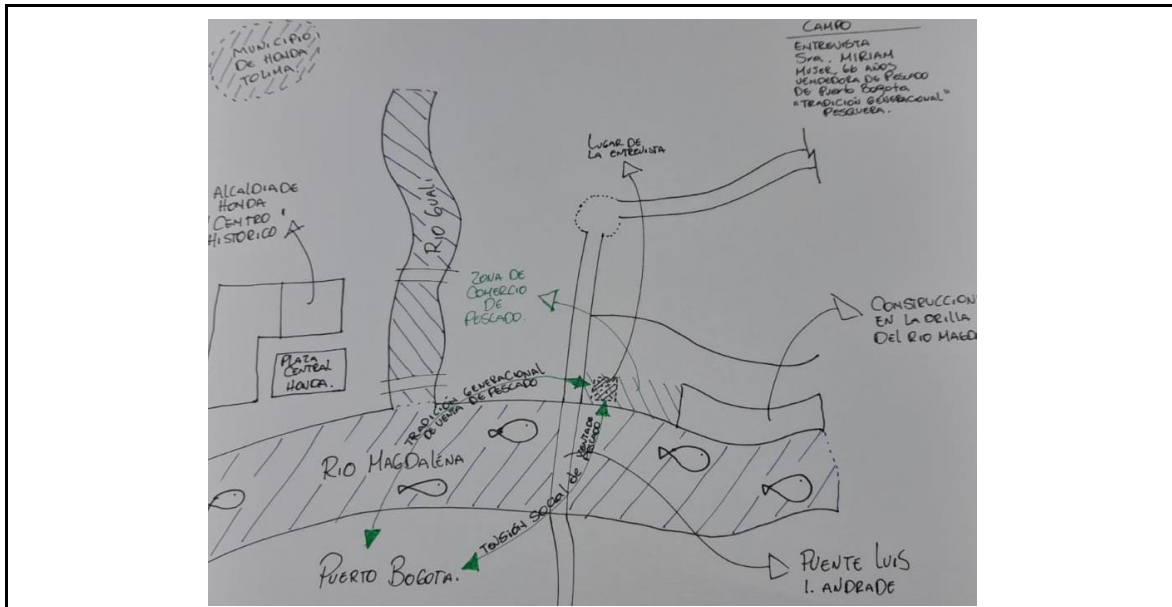 MUNICIPIO
DE HONDA
TOLIMA.
CAMPO
ENTREVISTA
Sra. MIRIAM
MUJER 66 AÑOS
VENDEDORA DE PESCADO
DE PUERTO BOGOTA
"TRADICIÓN GENERACIONAL"
PESQUERA.
LUGAR DE
LA ENTREVISTA
ALCALDIA DE
HONDA
"CENTRO
HISTORICO"
RIO GUALI
ZONA DE
COMERCIO
DE
PESCADO.
CONSTRUCCION
EN LA ORILLA
DEL RIO MAGDA
PLAZA
CENTRAL
HONDA.
TRADICIÓN GENERACIONAL
DE VENTA DE PESCADO
RIO MAGDALENA
TENSIÓN SOCIAL de VENTA DE
PESCADO
PUERTO BOGOTA.
PUENTE LUIS
I. ANDRADE